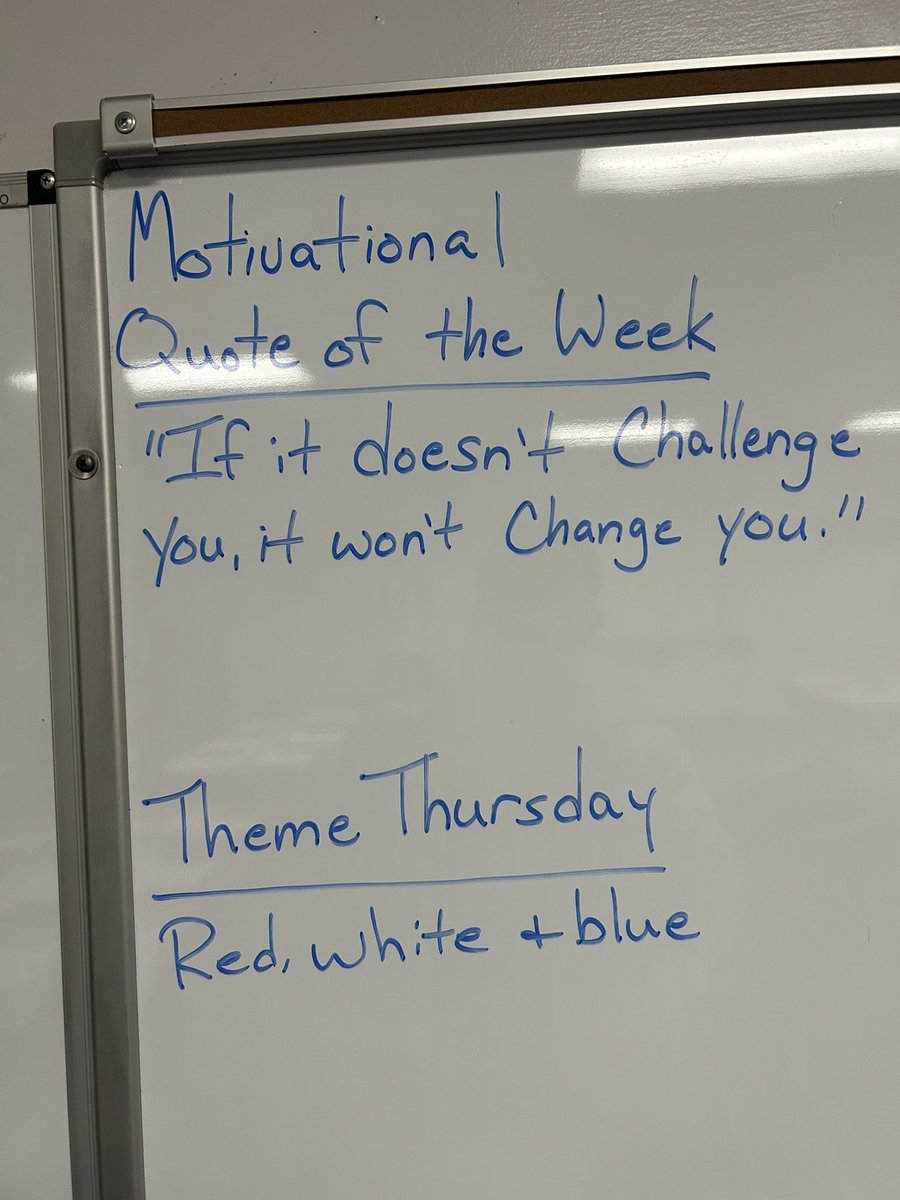 Motivational
Quote of the Week
"If it doesn't Challenge
You, it won't Change you."
Theme Thursday
Red, white + blue